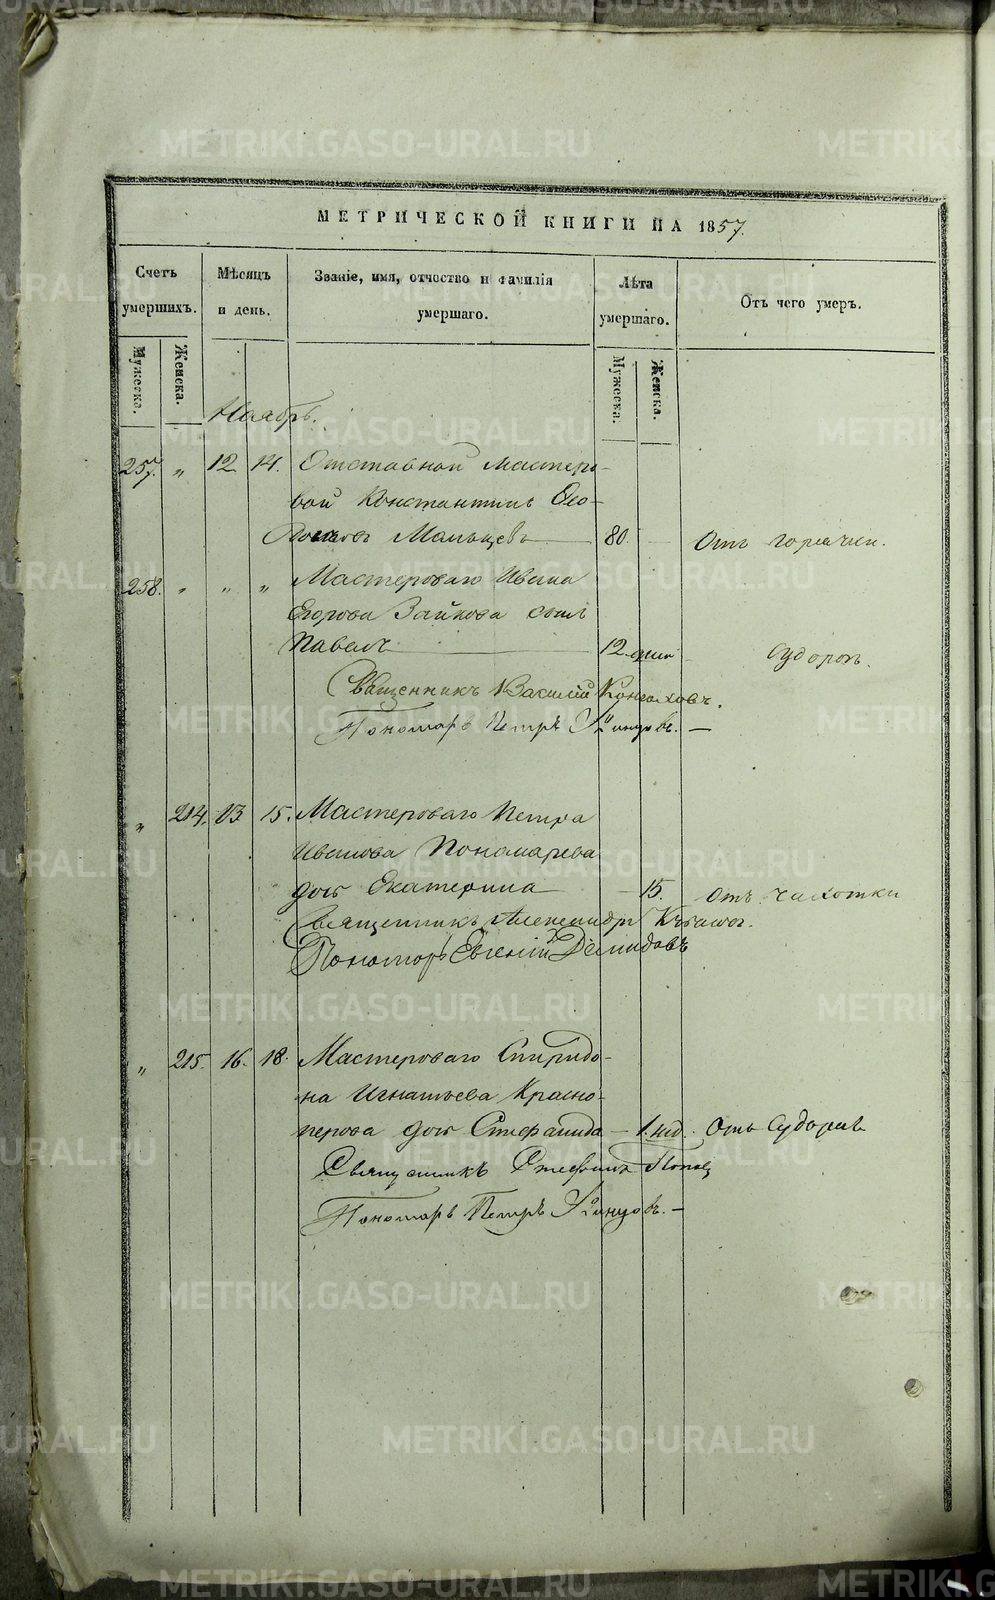 МЕТРИЧЕСКОЙ КНИГИ НА 1857.
Счетъ умершихъ.
Мѣсяцъ и день.
Званіе, имя, отчество и фамилія умершаго.
Лѣта умершаго.
Отъ чего умеръ.
Мужеска.
Женска.
Мужеска.
Женска.
Ноябрь.
257. " 12 14. Отставной Мастеро-
вой Константинъ
Мальцевъ 80 Отъ горячки.
258. " " " Мастероваго Ивана
Егорова Зайкова сынъ
Павелъ 12 дней Судорог.
Священникъ Василій
Пономарь Петръ
" 214. 13 15. Мастероваго Петра
Иванова Пономарева
дочь Екатерина 15. отъ чахотки
Священникъ Александръ
Пономарь Евгеній Демидовъ
" 215. 16. 18. Мастероваго Спиридо-
на Игнатьева Красно-
перова дочь Стефанида 1. нед. Отъ Судорог
Священникъ Стефанъ Поповъ
Пономарь Петръ
METRIKI.GASO-URAL.RU